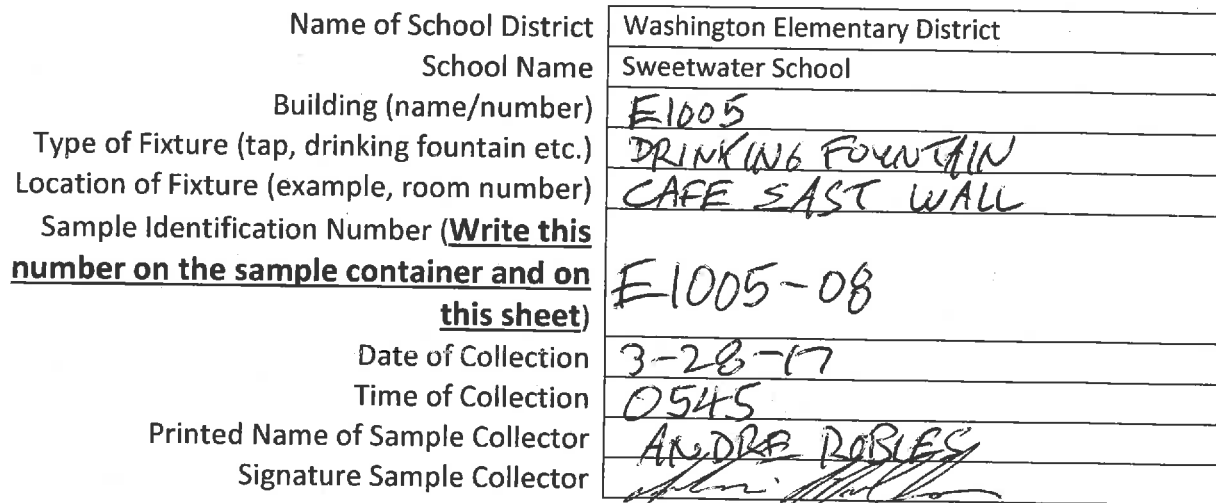 Name of School District Washington Elementary District
School Name Sweetwater School
Building (name/number) E1005
Type of Fixture (tap, drinking fountain etc.) DRINKING FOUNTAIN
Location of Fixture (example, room number) CAFE EAST WALL
Sample Identification Number (Write this
number on the sample container and on
this sheet) E1005-08
Date of Collection 3-28-17
Time of Collection 0545
Printed Name of Sample Collector ANDRE ROBLES
Signature Sample Collector